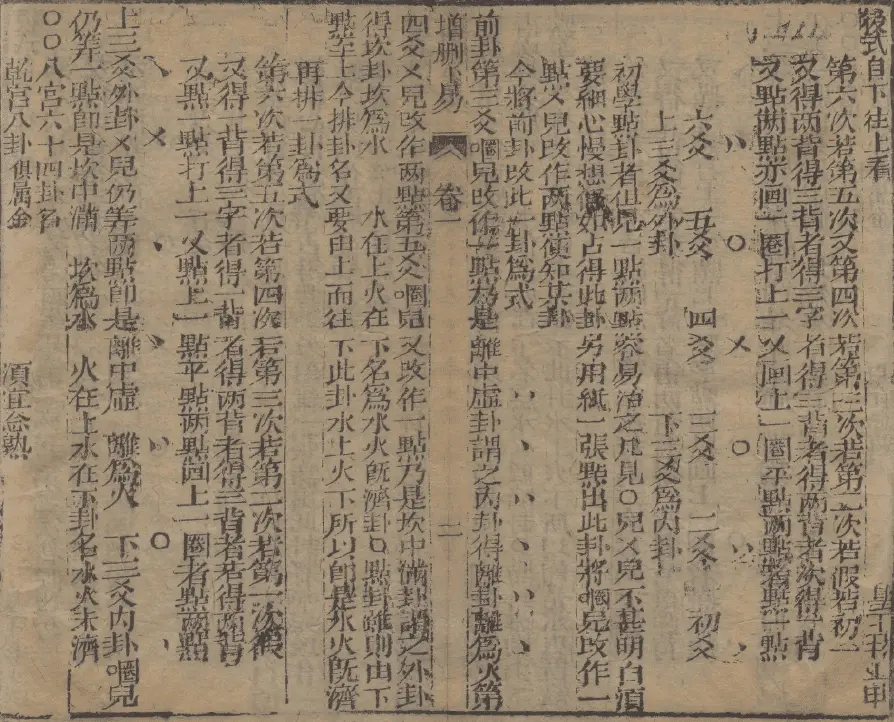 後式自下往上看
第六次若第五次又第四次若第三次若第二次若假若初一
又得两背得三背者得三字者得三背者得两背者次得一背
又點两點亦囬一圈打上一乂囬上一圈平點两點
六爻 五爻 四爻 三爻 二爻 初爻
上三爻爲外卦 下三爻爲内卦
初學點卦者但見一點两點容易治之凡見〇兒乂兒不甚明白須
要細心慢想假如占得此卦另用紙一張點出此卦將圈兒改作一
點乂兒改作两點便知某卦
今將前卦改此一卦爲式
前卦第三爻圈兒改作一點乃是離中虚卦謂之内卦得離卦離爲火第
增删卜易 卷一 二
四爻乂兒改作两點第五爻圈兒又改作一點乃是坎中满卦謂之外卦
得坎卦坎爲水 水在上火在下名爲水火旣濟卦凡點卦離則由下
點至上今排卦名又要由上而往下此卦水上火下所以卽是水火旣濟
再排一卦爲式
第六次若第五次若第四次若第三次若第二次若第一次假
又得一背得三字者得一背者得两背者得三背者若得两背
又點一點打上一乂點上一點平點两點圈上一圈者點两點
乂 〇
上三爻外卦乂兒仍筭两點卽是離中虚 離爲火 下三爻内卦圈兒
仍筭一點卽是坎中满 坎爲水 火在上水在下卦名火水未濟
〇〇八宫六十四卦名
乾宫八卦俱属金 須宜念熟